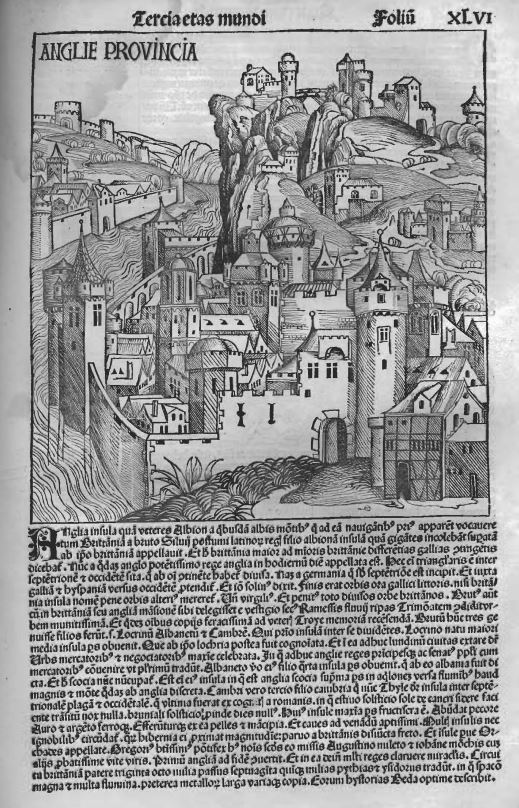 Tercia etas mundi Foliū XLVI
ANGLIE PROVINCIA
Anglia insula quā veteres Albion a q̄busdā albis mōtib⁹ q̄ ad eā nauigātib⁹ pri⁹ apparēt vocauere
tum Britāniā a bruto Siluij postumi latinoɼ regꝭ filio albionā insulā quā gigātes incolebāt supatā
ab ipo brittāniā appellauit. Et brittānia maior ad mioris brittānie differētias gallias
dicebat. Nūc a q̄dā anglo potētissimo rege anglia in hodiernū diē appellata est. Hec triangľaris ē inter
septētrionē ⁊ occidētē sita. q̄ ab oī ptinēte diuisa. Nas a germania septētriōe est incipit. Et iuxta
galliā ⁊ hyspaniā versus occidētē ptendit. solin⁹ dixit. Finis erat orbis ora gallici littoris. nisi britā
nia insula nomē pene orbis alteri⁹ mereret. virgili⁹. Et penit⁹ toto diuisos orbe britānos.
in britānia seu anglia māsionē sibi delegisset e vestigio fluuij ripas
bem munitissimā. Et copijs feracissimā ad veterꝭ Troye memoriā recēsendā. Brutū tres ge
nuisse filios ferūt. Locrinū Albanctū ⁊ Cambrē. Qui p̄rio insulā inter se diuidētes. Locrino natu maiori
media insula ps obuenit. Que ab ipo locbria postea fuit cognoīata. Et ea adhuc lundinū ciuitas extare
Urbs mercatorib⁹ ⁊ negociatorib⁹ maxīe celebrata. In q̄ adhuc anglie reges
mercatorib⁹ cōuenire vt plrimū tradūt. Albaneto filio q̄rta insule ps obuenit. q̄ ab eo albania fuit di
cta. Et scocia nūc nūcupat. Est insula in q̄ est anglia scocia supma ps in aq̄lones versa flumib⁹ haud
magnis ⁊ mōte q̄dā ab anglia discreta. Cambri vero tercio filio cambria q̄ nūc Thyle insula inter septē
trionalē plagā ⁊ occidētalē. q̄ vltima fuerat ex a romanis. in q̄ estiuo solsticio sole ex cancri sidere faci
ente trāsitū nox nulla. brumali solsticio pinde dies null⁹. insule maxīa ps fructifera ē. Abūdat pecore
Auro ⁊ argēto ferroqꝫ. Efferūturqꝫ ex ea pelles ⁊ mācipia. Et canes ad venādū aptissimi. Mulꝭ insulis nec
ignobilib⁹ circūdat. q̄ꝫ hibernia ei pximat magnitudīe: paruo a britānis disiūcta freto. Et isule que Or
chades appellate. Gregori⁹ btissim⁹ pōtifex noīs scōs eo missis Augustino muleto ⁊ iohāne mōchis cū
alijs pbatissime vite viris. Primū angliā ad fidē puertit. Et in ea dein mlti reges claruere miraclis. Circui
tu brittāniā patere triginta octo milia passus septuagīta quīqꝫ milia pythias ⁊ ysidorus tradūt. in q̄ spacō
magna ⁊ multa flumina. preterea metalloɼ larga variaqꝫ copia. Eorum hystorias Beda optime describit.